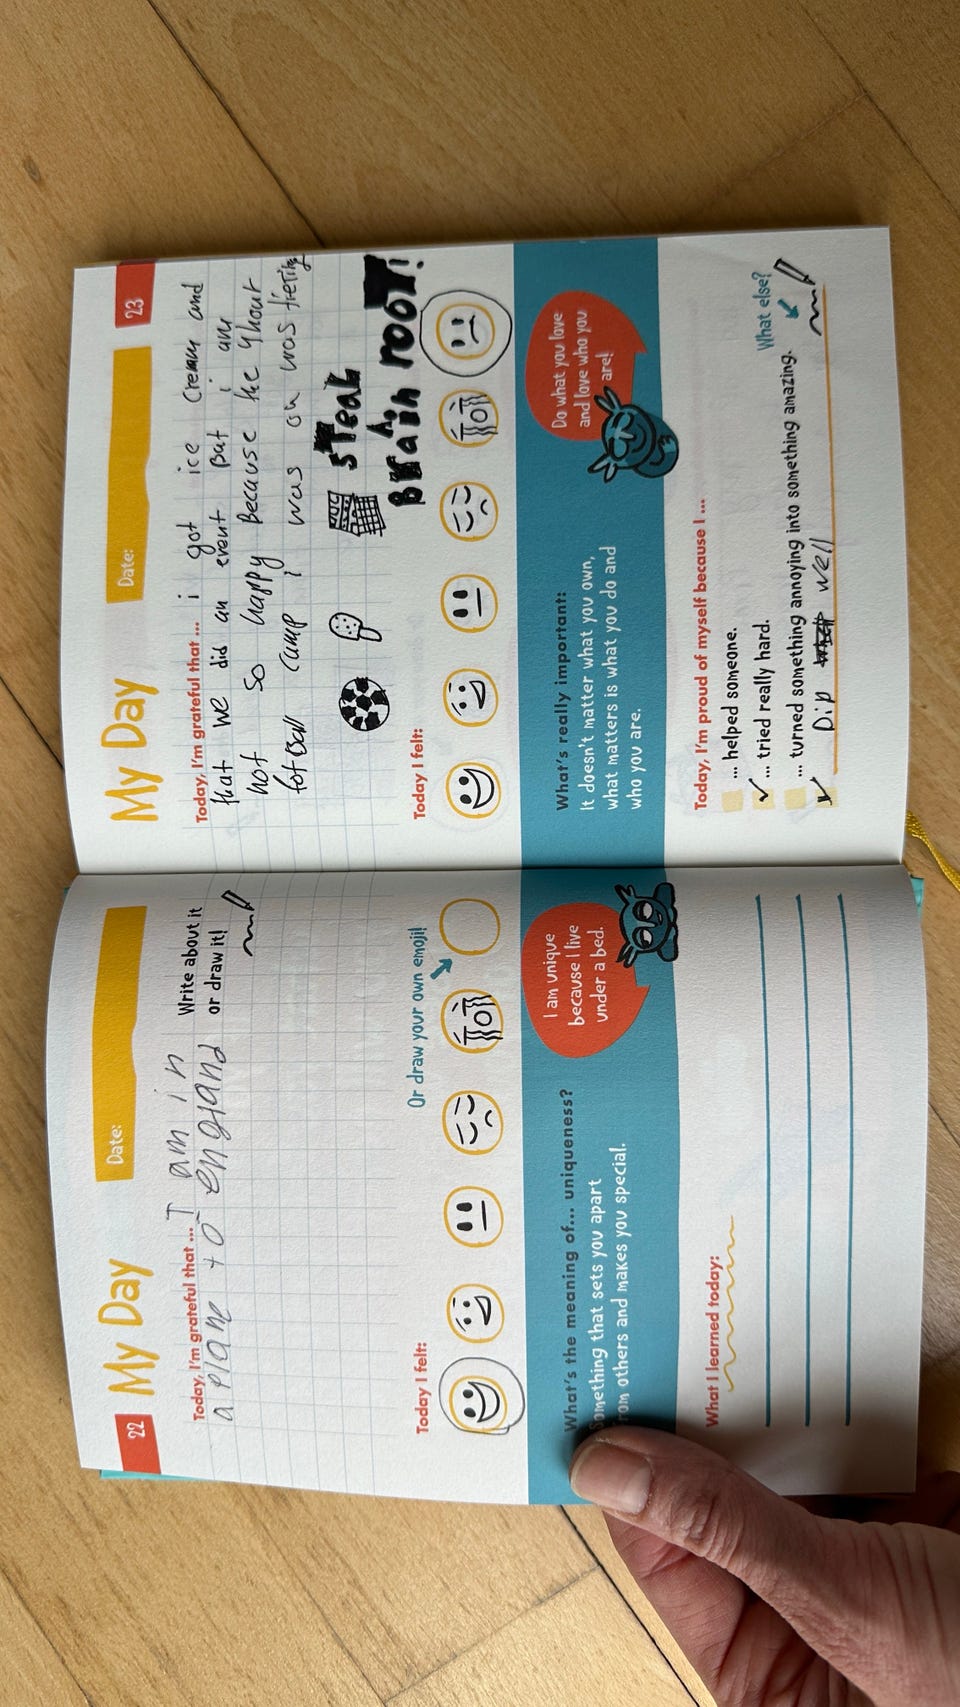 22
My Day
Date:
Today, I'm grateful that ... I am in
a plane to england
Write about it
or draw it!
Today I felt:
Or draw your own emoji!
What's the meaning of... uniqueness?
Something that sets you apart
from others and makes you special.
I am unique
because I live
under a bed.
What I learned today:
My Day
Date:
23
Today, I'm grateful that ... i got ice cream and
that we did an event but i am
not so happy because the ghout
fotball camp i was on was tiering
steal
A
Brain root!
Today I felt:
What's really important:
It doesn't matter what you own,
what matters is what you do and
who you are.
Do what you love
and love who you
are!
Today, I'm proud of myself because I ...
... helped someone.
... tried really hard.
... turned something annoying into something amazing.
What else?
Dip well